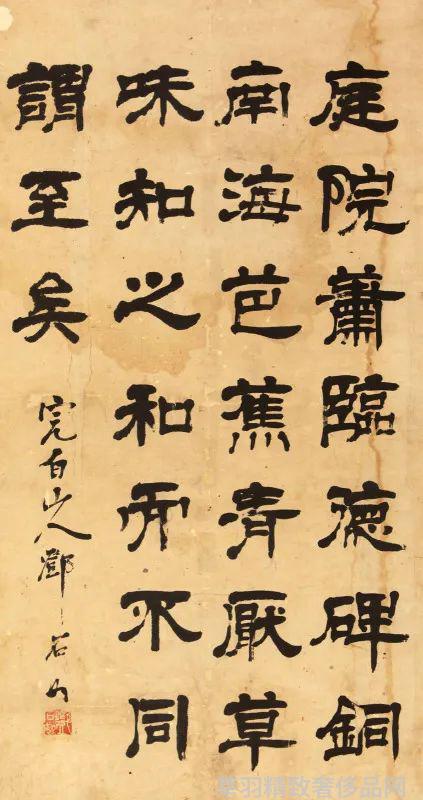 庭院蕭臨德碑銅
南海芭蕉青厭草
味知之和而不同
謂至矣
完白山人鄧石如
羽精致奢侈品网